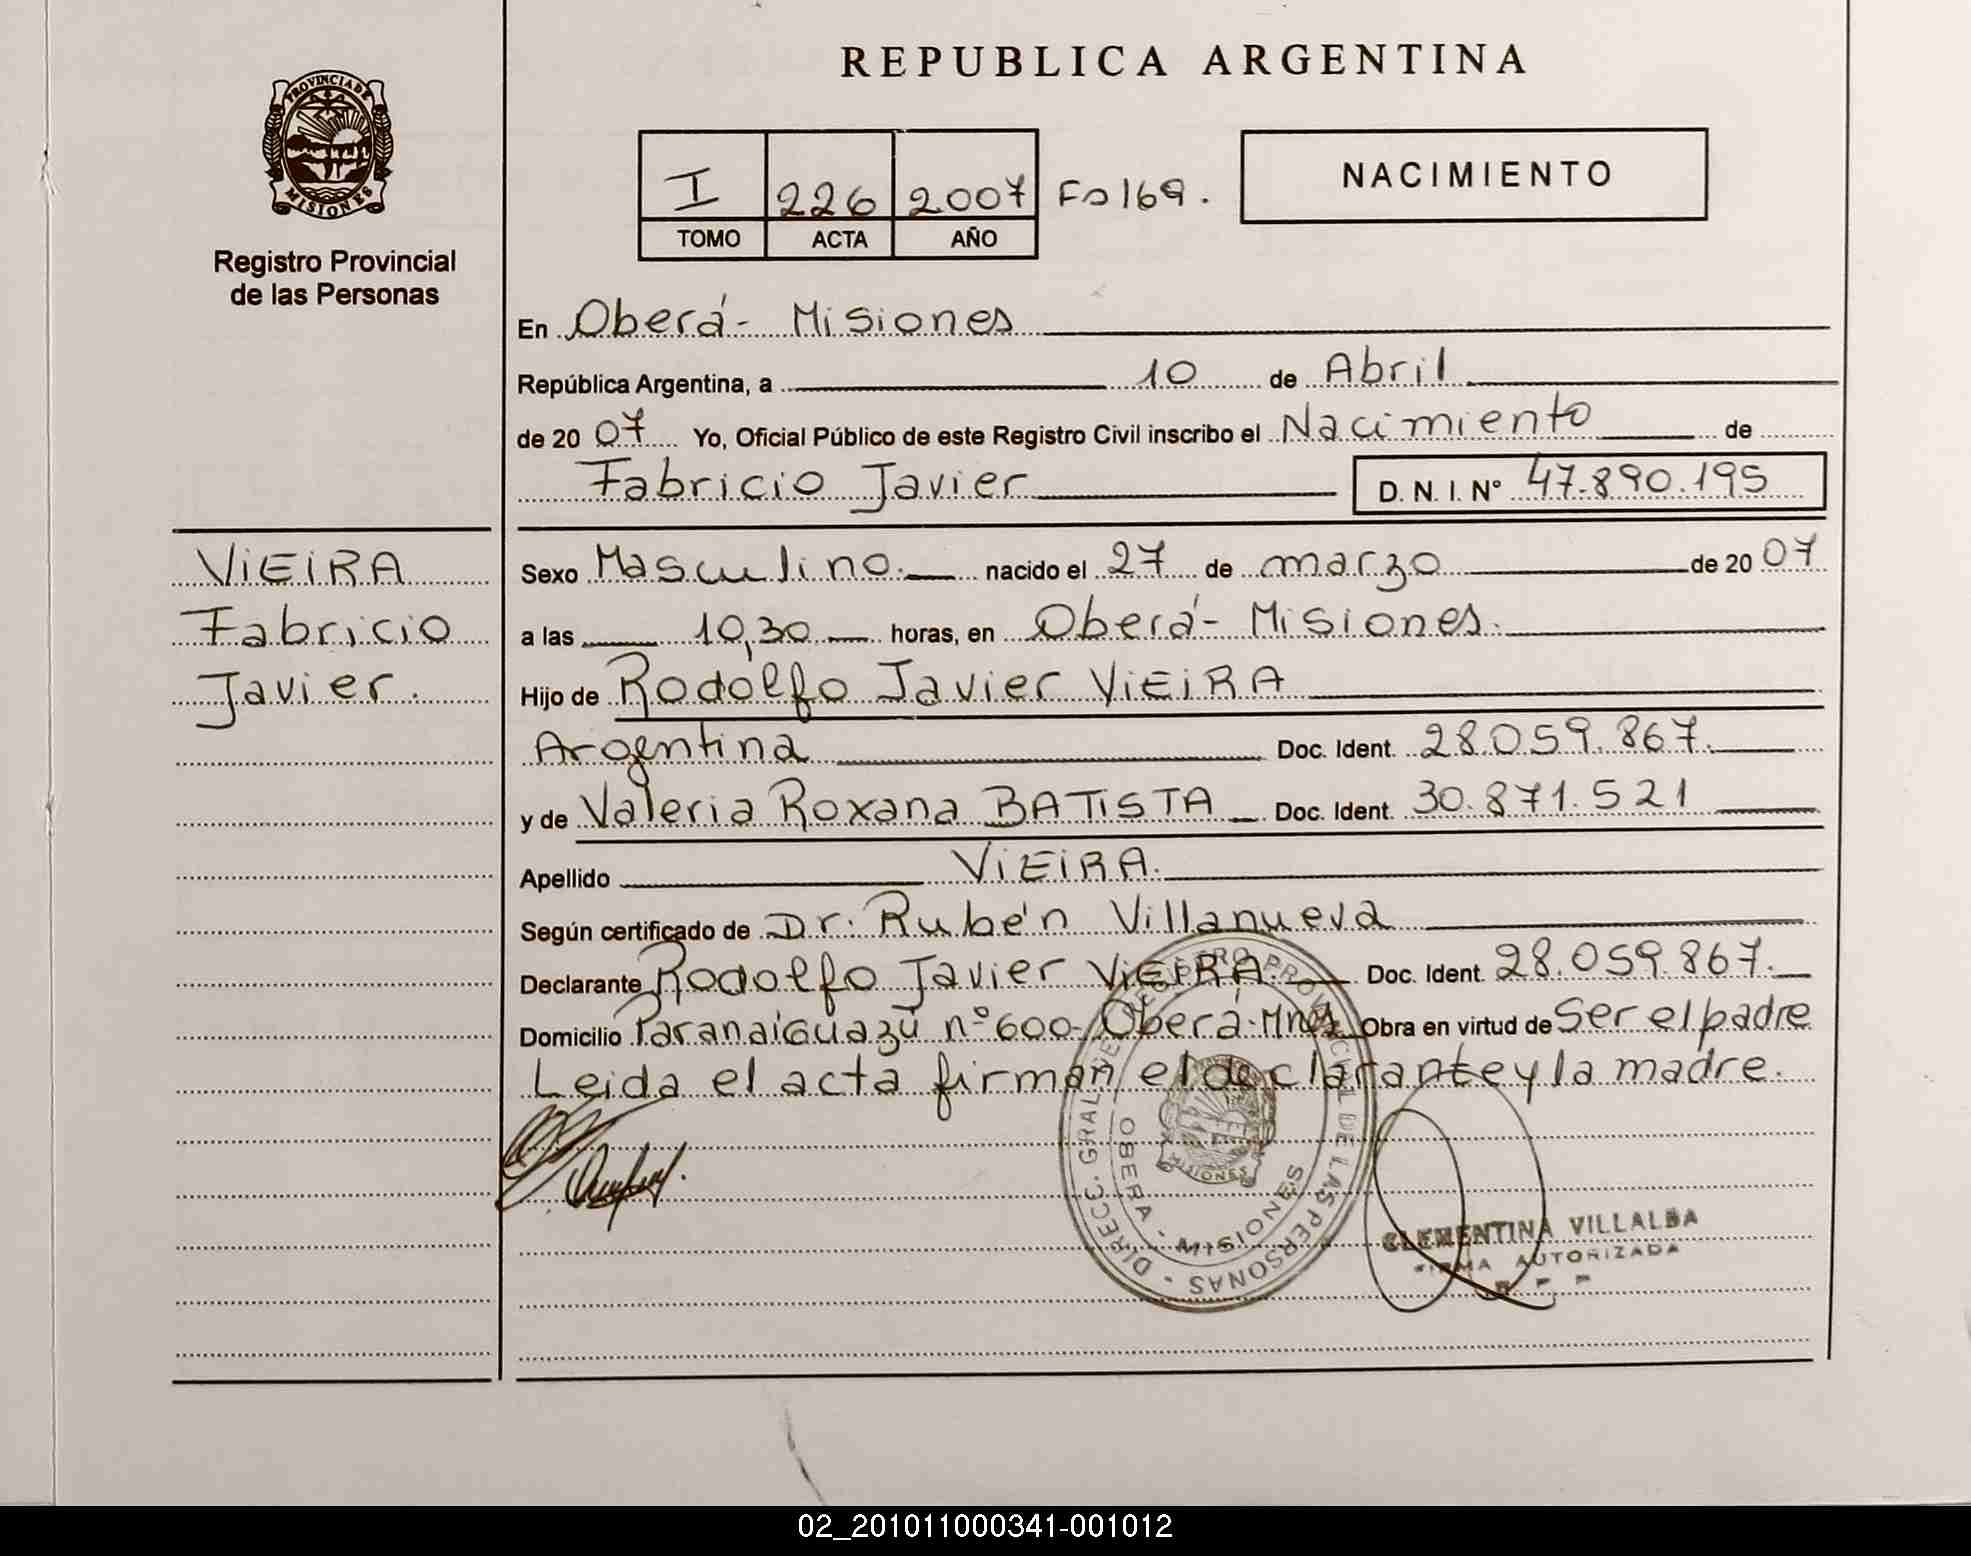 REPUBLICA ARGENTINA
PROVINCIA DE
MISIONES
Registro Provincial
de las Personas
I 226 2007 Fo 169.
TOMO ACTA AÑO
NACIMIENTO
En Oberá - Misiones
República Argentina, a 10 de Abril
de 20 07 Yo, Oficial Público de este Registro Civil inscribo el Nacimiento de
Fabricio Javier D. N. I. Nº 47.890.195
VIEIRA
Fabricio
Javier.
Sexo Masculino. nacido el 27 de marzo de 20 07
a las 10,30 horas, en Oberá - Misiones.
Hijo de Rodolfo Javier VIEIRA
Argentina Doc. Ident. 28.059.867.
y de Valeria Roxana BATISTA Doc. Ident. 30.871.521
Apellido VIEIRA.
Según certificado de Dr. Rubén Villanueva
Declarante Rodolfo Javier VIEIRA. Doc. Ident. 28.059.867.
Domicilio Paranaiguazú nº 600- Oberá - Mnes Obra en virtud de Ser el padre
Leida el acta firman el declarante y la madre.
DIREC. GRAL. DEL REGISTRO PROVINCIAL DE LAS PERSONAS
OBERA - MISIONES
MISIONES
CLEMENTINA VILLALBA
FIRMA AUTORIZADA
02_201011000341-001012